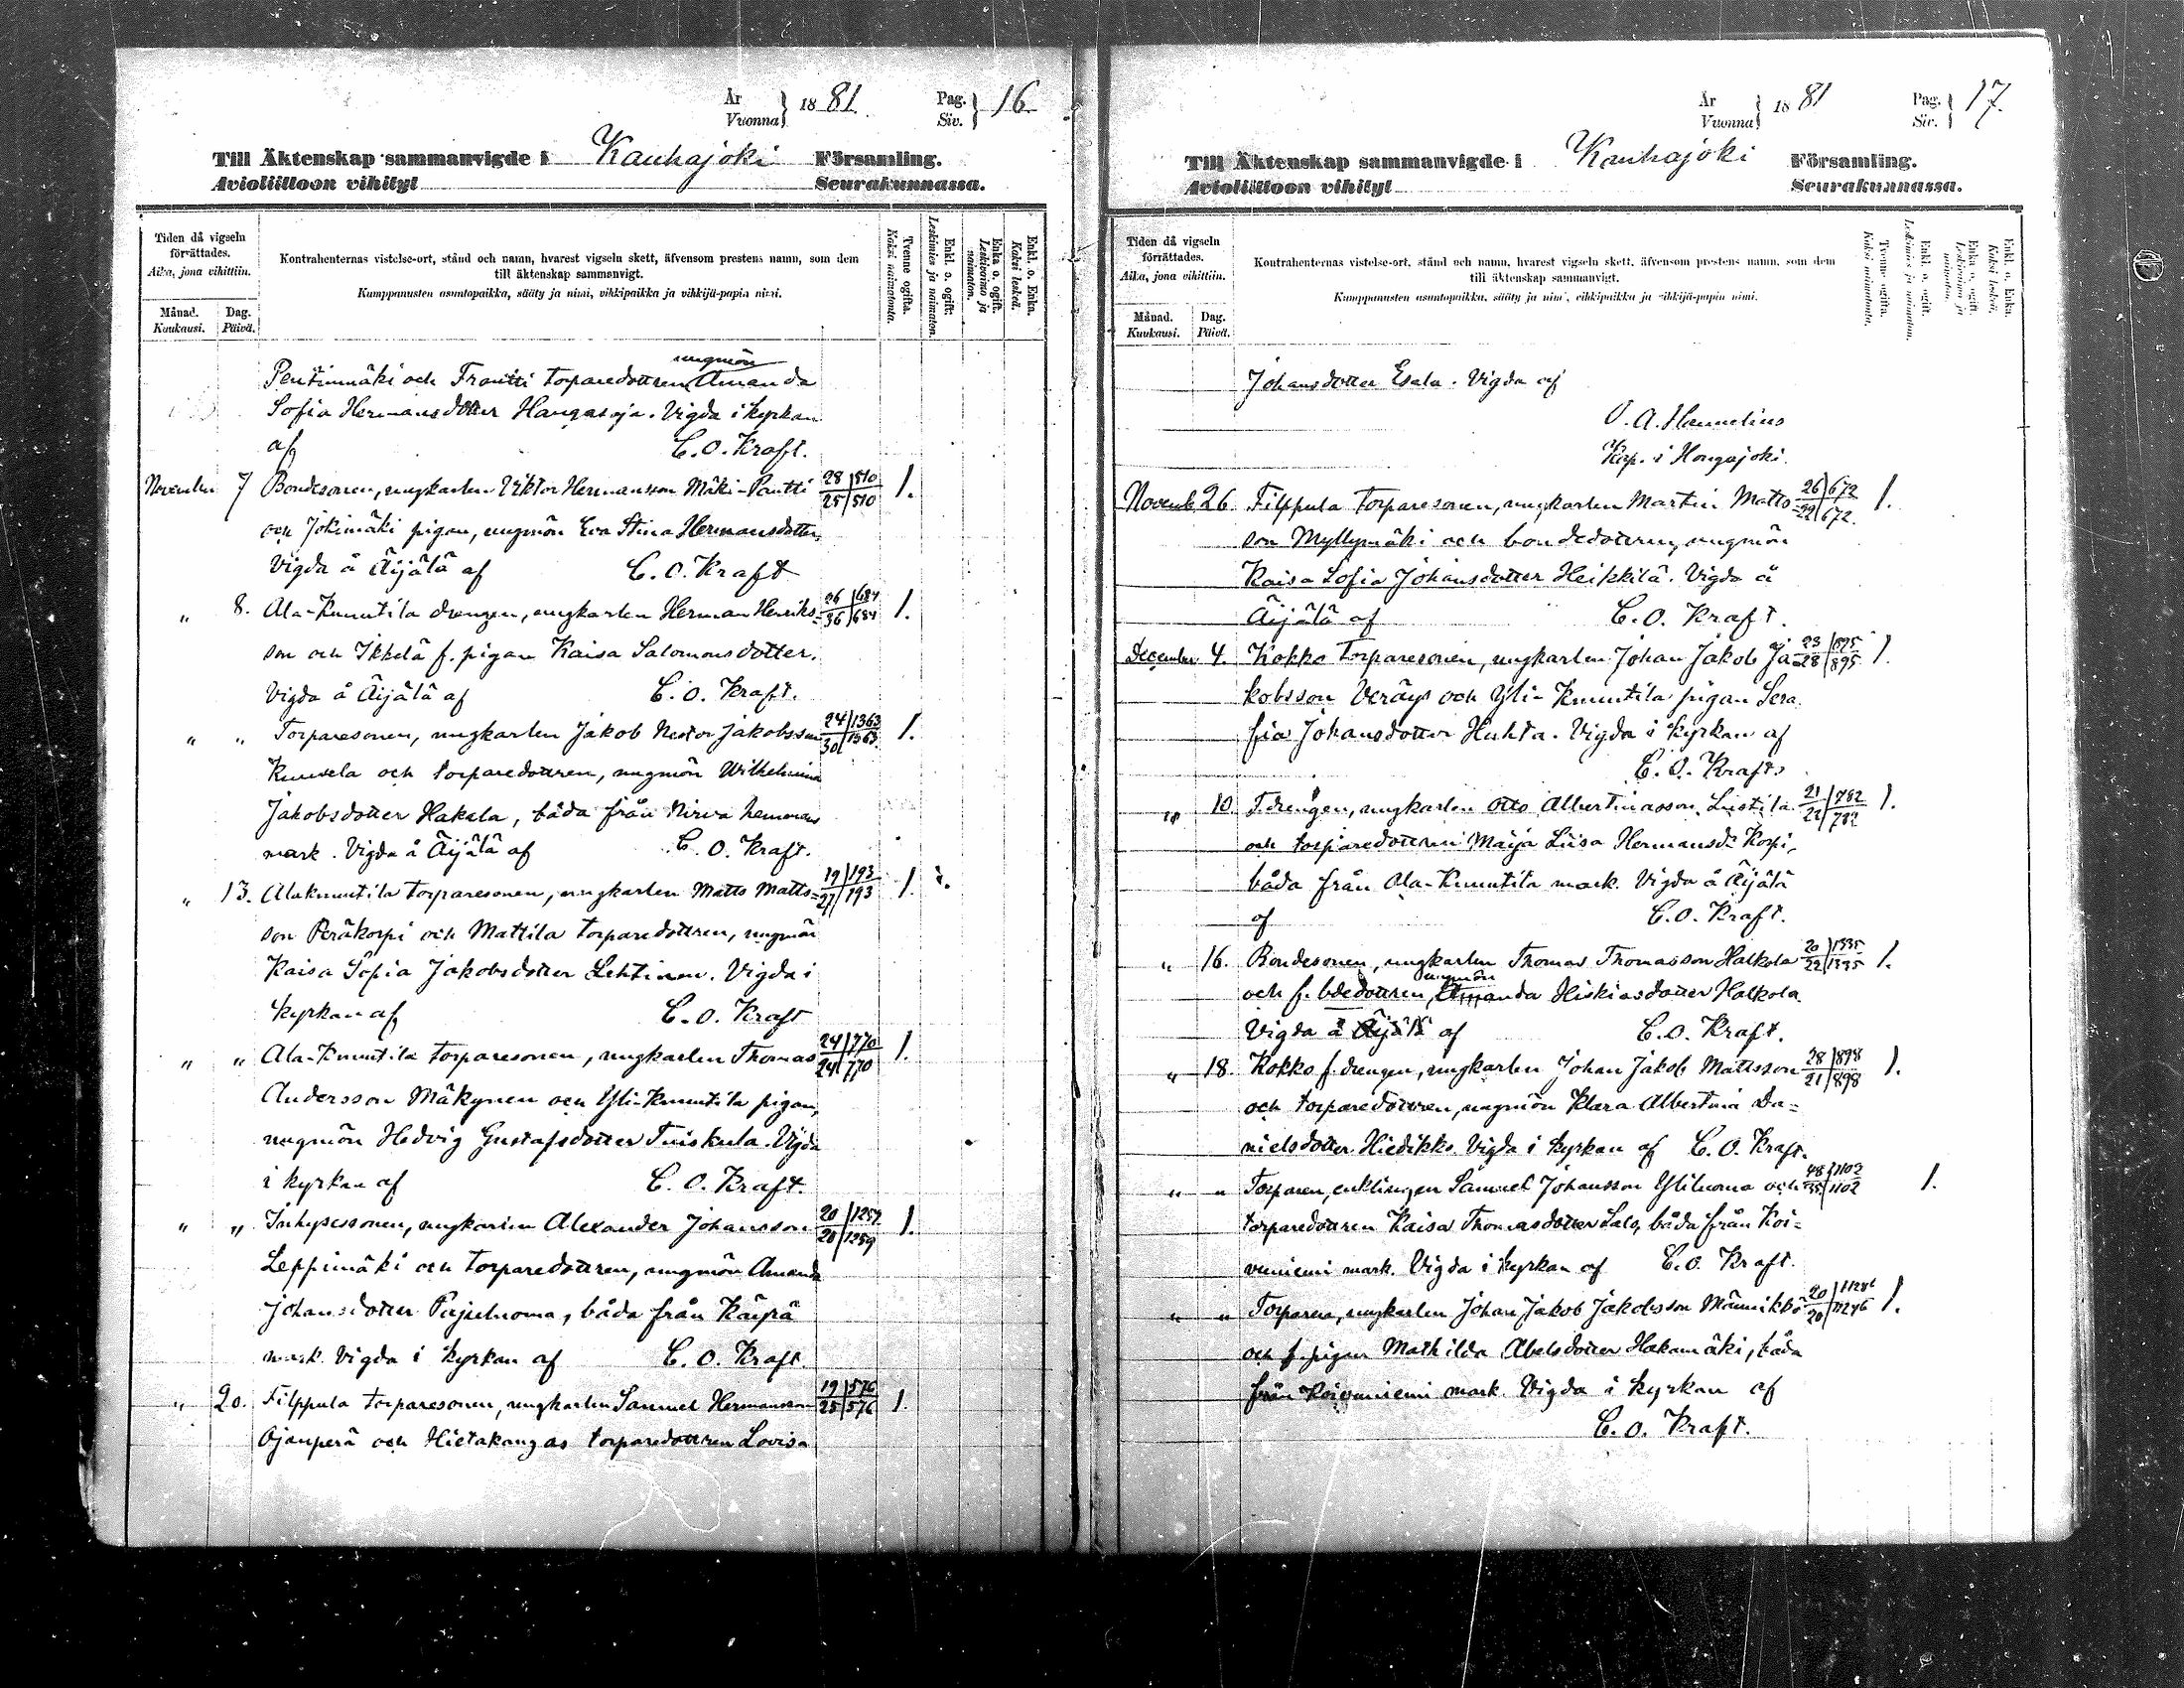 År
Vuonna } 1881. Pag.
Siv. } 16
Till Äktenskap sammanvigde i Kauhajoki Församling.
Avioliittoon vihityt Seurakunnassa.
Tiden då vigseln förrättades.
Aika, jona vihittiin.
Månad.
Kuukausi.
Dag.
Päivä.
Kontrahenternas vistelse-ort, stånd och namn, hvarest vigseln skett, äfvensom prestens namn, som dem
till äktenskap sammanvigt.
Kumppanusten asuntopaikka, sääty ja nimi, vihkipaikka ja vihkijä-papin nimi.
Tvenne ogifta.
Kaksi naimatonta.
Enkl. o. ogift.
Leskimies ja naimaton.
Enka o. ogift.
Leskivaimo ja naimaton.
Enkl. o. Enka.
Kaksi leskeä.
ungmön
Penttinmäki och Frantti torparedottren Amanda
Sofia Hermansdotter Hangasoja. Vigda i kyrkan
af C. O. Kraft.
November 7 Bondesonen, ungkarlen Viktor Hermansson Mäki-Pantti 28/510 1.
25/510
och Jokimäki pigan, ungmön Eva Stina Hermansdotter,
Vigda å Äijälä af C. O. Kraft
" 8. Ala-Knuutila drengen, ungkarlen Herman Henriks= 26/684 1.
36/684
son och Ikkelä f. pigan Kaisa Salomonsdotter.
Vigda å Äijälä af C. O. Kraft.
" " Torparesonen, ungkarlen Jakob Nestor Jakobsson 24/1363 1.
30/1363
och torparedottren, ungmön Wilhelmina
Jakobsdotter Hakala, båda från Nirva hemmans
mark. Vigda å Äijälä af C. O. Kraft.
" 13. Alaknuutila torparesonen, ungkarlen Matts Matts= 19/193 1.
27/193
son Peräkorpi och Mattila torparedottren, ungmön
Kaisa Sofia Jakobsdotter Lehtinen. Vigda i
kyrkan af C. O. Kraft
" " Ala-Knuutila torparesonen, ungkarlen Thomas 24/770 1.
24/770
Andersson Mäkynen och Yli-Knuutila pigan,
ungmön Hedvig Gustafsdotter Tuiskula. Vigda
i kyrkan af C. O. Kraft.
" " Inhysessonen, ungkarlen Alexander Johansson 20/1259 1.
28/1259
Leppimäki och torparedottren, ungmön Amanda
Johansdotter Pajuluoma, båda från Käyrä
mark. Vigda i kyrkan af C. O. Kraft
" 20. Filppula torparesonen, ungkarlen Samuel Hermansson 19/576 1.
25/576
Ojanperä och Hietakangas torparedottren Lovisa
År
Vuonna } 1881 Pag.
Siv. } 17.
Till Äktenskap sammanvigde i Kauhajoki Församling.
Avioliittoon vihityt Seurakunnassa.
Tiden då vigseln förrättades.
Aika, jona vihittiin.
Månad.
Kuukausi.
Dag.
Päivä.
Kontrahenternas vistelse-ort, stånd och namn, hvarest vigseln skett, äfvensom prestens namn, som dem
till äktenskap sammanvigt.
Kumppanusten asuntopaikka, sääty ja nimi, vihkipaikka ja vihkijä-papin nimi.
Tvenne ogifta.
Kaksi naimatonta.
Enkl. o. ogift.
Leskimies ja naimaton.
Enka o. ogift.
Leskivaimo ja naimaton.
Enkl. o. Enka.
Kaksi leskeä.
Johansdotter Esala. Vigda af
O. A. Hannelius
Kap. i Hongajoki.
Novemb. 26. Filppula torparesonen, ungkarlen Martin Matts= 26/672 1.
22/672.
son Myllymäki och bondedottren, ungmön
Kaisa Sofia Johansdotter Heikkilä. Vigda å
Äijälä af C. O. Kraft.
December 4. Kokko Torparesonen, ungkarlen Johan Jakob Ja= 23/895 1.
28/895
kobsson Veräys och Yli-Knuutila pigan Sera
fia Johansdotter Huhta. Vigda i kyrkan af
C. O. Kraft.
" 10. F. drengen, ungkarlen Otto Albertinasson Lustila 21/782 1.
22/782
och torparedottren Maija Liisa Hermansdr Korpi,
båda från Ala-Knuutila mark. Vigda å Äijälä
af C. O. Kraft.
" 16. Bondesonen, ungkarlen Thomas Thomasson Halkola 20/1335 1.
22/1335
ungmön
och f. bdedottren, Amanda Hiskiasdotter Halkola.
Vigda å Äijälä af C. O. Kraft.
" 18. Kokko f. drengen, ungkarlen Johan Jakob Mattsson 28/898 1.
21/898
och torparedottren, ungmön Klara Albertina Da=
nielsdotter Hiedikko. Vigda i kyrkan af C. O. Kraft.
" " Torparen, enklingen Samuel Johansson Yliluoma och 48/1102 1.
/1102
torparedottren Kaisa Thomasdotter Salo, båda från Koi=
vuniemi mark. Vigda i kyrkan af C. O. Kraft.
" " Torparen, ungkarlen Johan Jakob Jakobsson Männikkö 20/ 1.
20/
och f. pigan Mathilda Abelsdotter Hakamäki, båda
från Koivuniemi mark. Vigda i kyrkan af
C. O. Kraft.